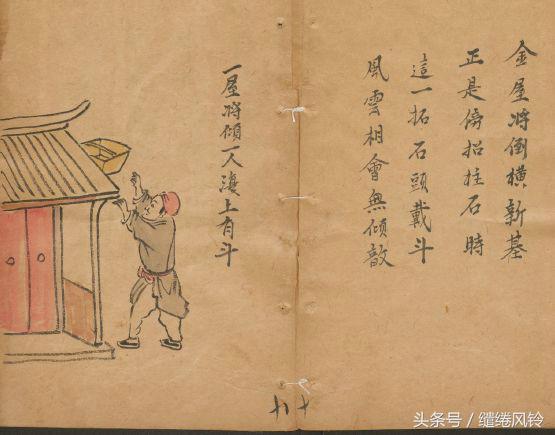 金屋將倒橫新基
正是傍招柱石時
這一拓石頭戴斗
風雲相會無傾欹
一屋將傾一人
上有斗
十八
头条号／缱绻风铃